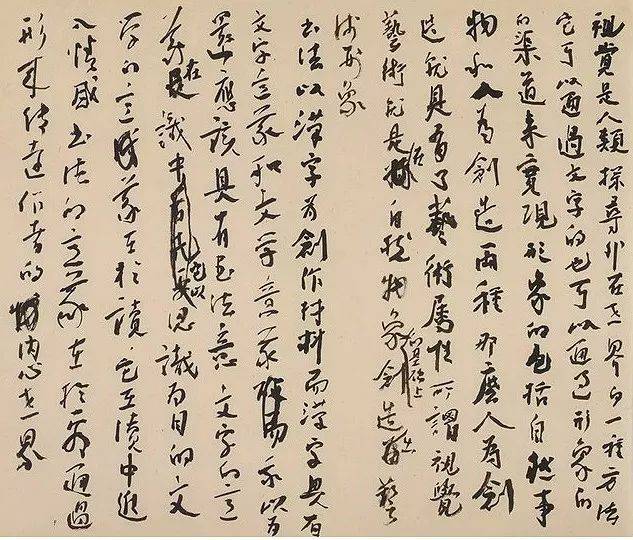 視覺是人類探尋外在世界的一種方法
它可以通過文字的也可以通過形象的
的渠道來實現形象的包括自然事
物和人為創造兩種那麼人為創
造就具有了藝術屬性所謂視覺
藝術就是自然物象的基礎上創造出藝
術形象
書法以漢字為創作材料而漢字具有
文字意義和文學意義我以為
還應該具有書法意義文字的意
義是在識中它以認識為目的文
学的意義在於讀它在讀中進
入情感書法的意義在於看通過
形来傳達作者的内心世界